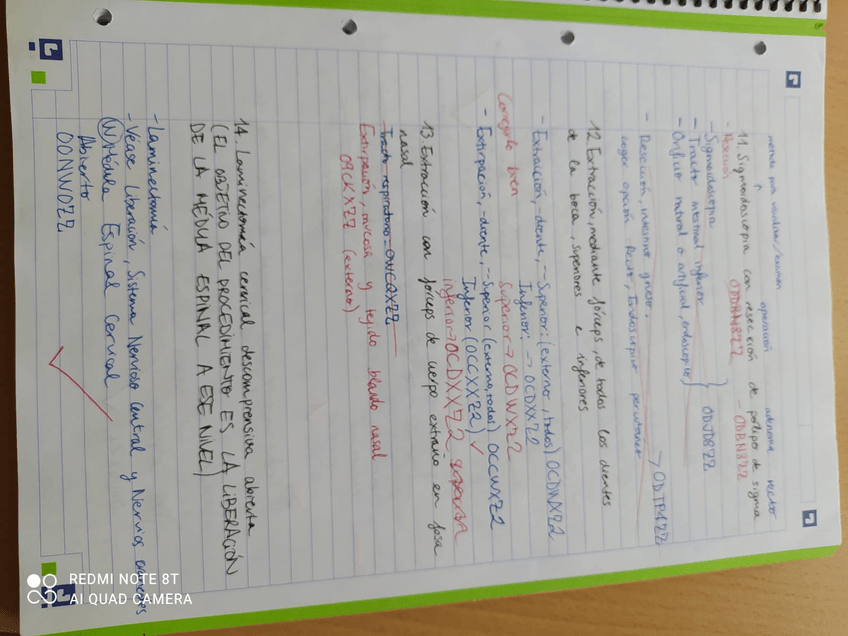 método para visualizar/examen operación adenoma recto
11. Sigmoidoscopia con resección de pólipo de sigma
- Resección
0DDBN8ZZ - 0DBN8ZZ
- Sigmoidoscopia
- Tracto intestinal inferior
- Orificio natural o artificial, endoscópico
0DJD8ZZ
- Resección, intestino grueso.
coger opción Recto, Endoscópico percutáneo
→ 0DTP4ZZ
12. Extracción, mediante fórceps, de todos los dientes
de la boca, superiores e inferiores
- Extracción, -diente, - Superior: (externo, todos) 0CDWXZ2
Inferior: → 0CDXXZ2
Corregirlo bien
Superior → 0CDWXZ2
- Extirpación, -diente, - Superior (externo, todos) 0CCWXZ2
Inferior (0CCXXZ2)
inferior → 0CDXXZ2
13. Extracción con fórceps de cuerpo extraño en fosa
nasal
- Tracto respiratorio - 0WCQXZZ
Extirpación, mucosa y tejido blando nasal
09CKXZZ (externo)
14. Laminectomía cervical descompresiva abierta
(EL OBJETIVO DEL PROCEDIMIENTO ES LA LIBERACIÓN
DE LA MÉDULA ESPINAL A ESE NIVEL)
- Laminectomía
- Véase Liberación, Sistema Nervioso Central y Nervios craneales
(W) Médula Espinal Cervical
Abierto
00NW0ZZ
REDMI NOTE 8T
AI QUAD CAMERA